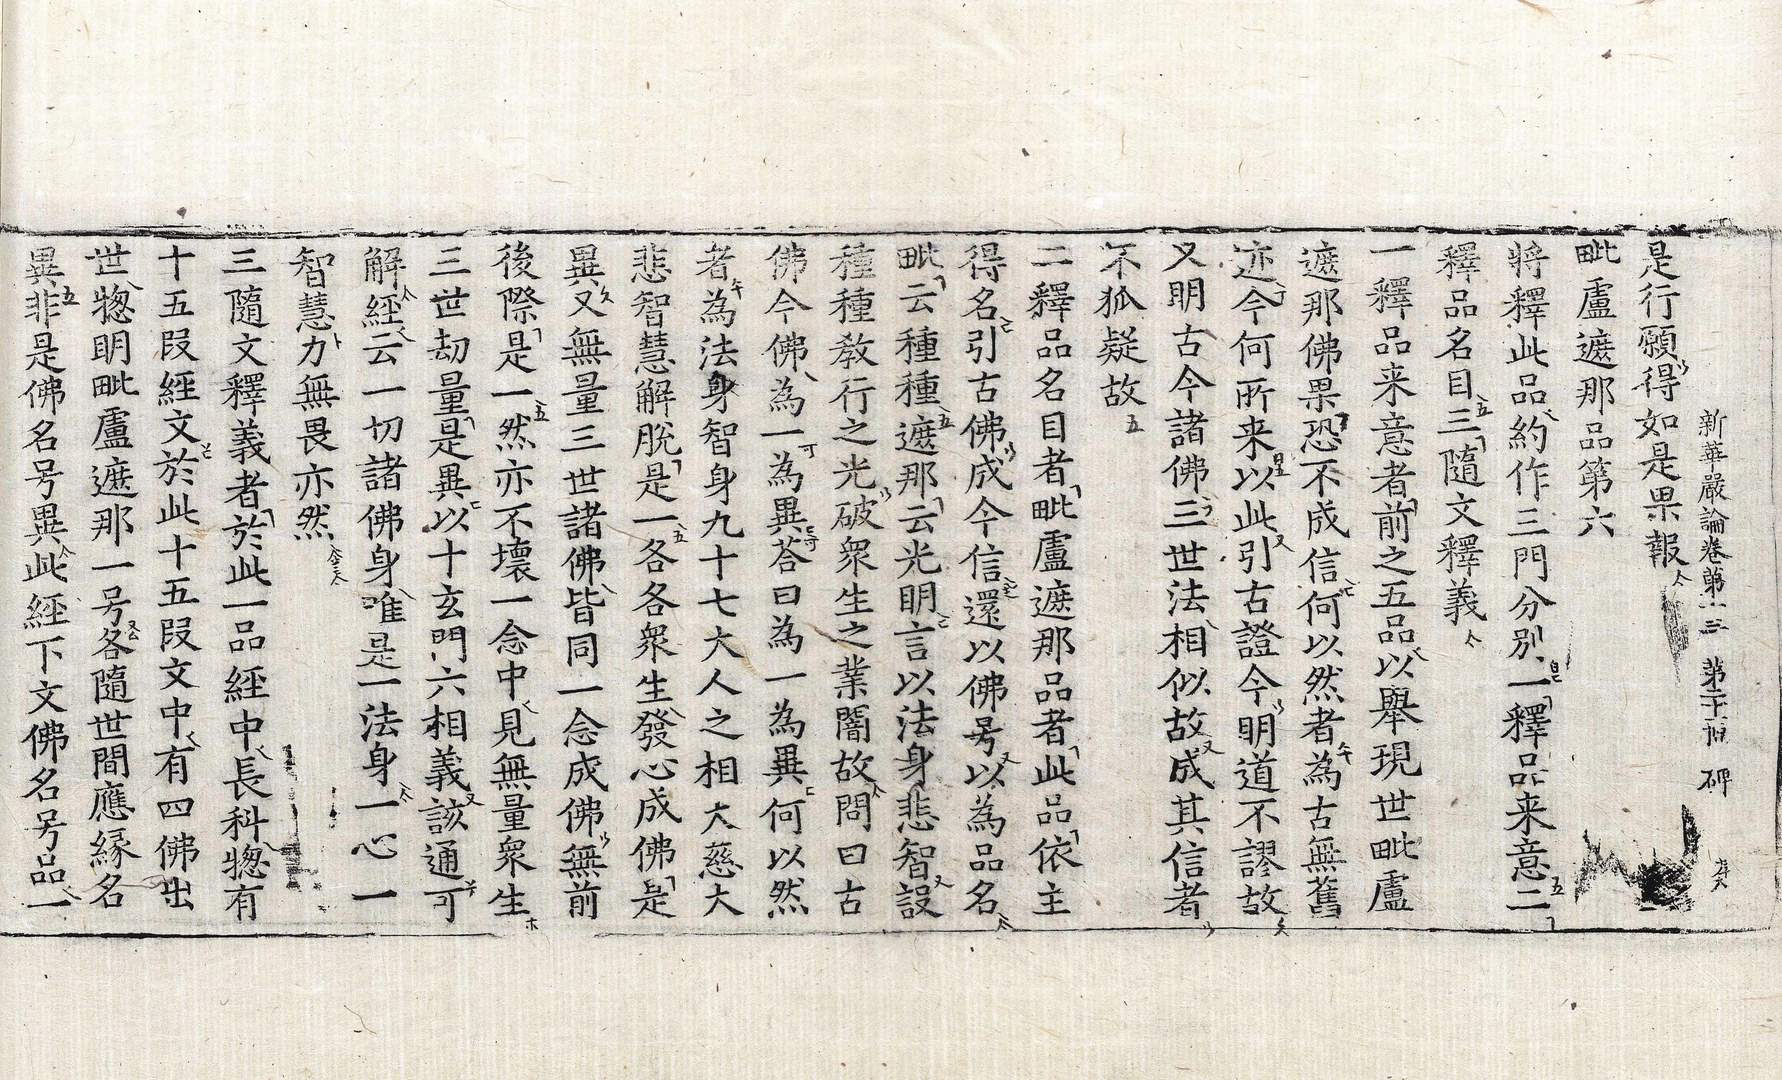 是行願得如是果報
新華嚴論卷第
毗盧遮那品第六
將釋此品約作三門分別一釋品来意二
釋品名目三隨文釋義
一釋品来意者前之五品以舉現世毗盧
遮那佛果恐不成信何以然者為古無舊
迹今何所来以此引古證今明道不謬故
又明古今諸佛三世法相似故成其信者
不狐疑故
二釋品名目者毗盧遮那品者此品依主
得名引古佛成今信還以佛号以為品名
毗云種種遮那云光明言以法身悲智設
種種教行之光破衆生之業闇故問曰古
佛今佛為一為異荅曰為一為異何以然
者為法身智身九十七大人之相大慈大
悲智慧解脫是一各各衆生發心成佛是
異又無量三世諸佛皆同一念成佛無前
後際是一然亦不壞一念中見無量衆生
三世劫量是異以十玄門六相義該通可
解經云一切諸佛身唯是一法身一心一
智慧力無畏亦然
三隨文釋義者於此一品經中長科惣有
十五段經文於此十五段文中有四佛出
世惣明毗盧遮那一号各隨世間應縁名
異非是佛名号異此經下文佛名号品一